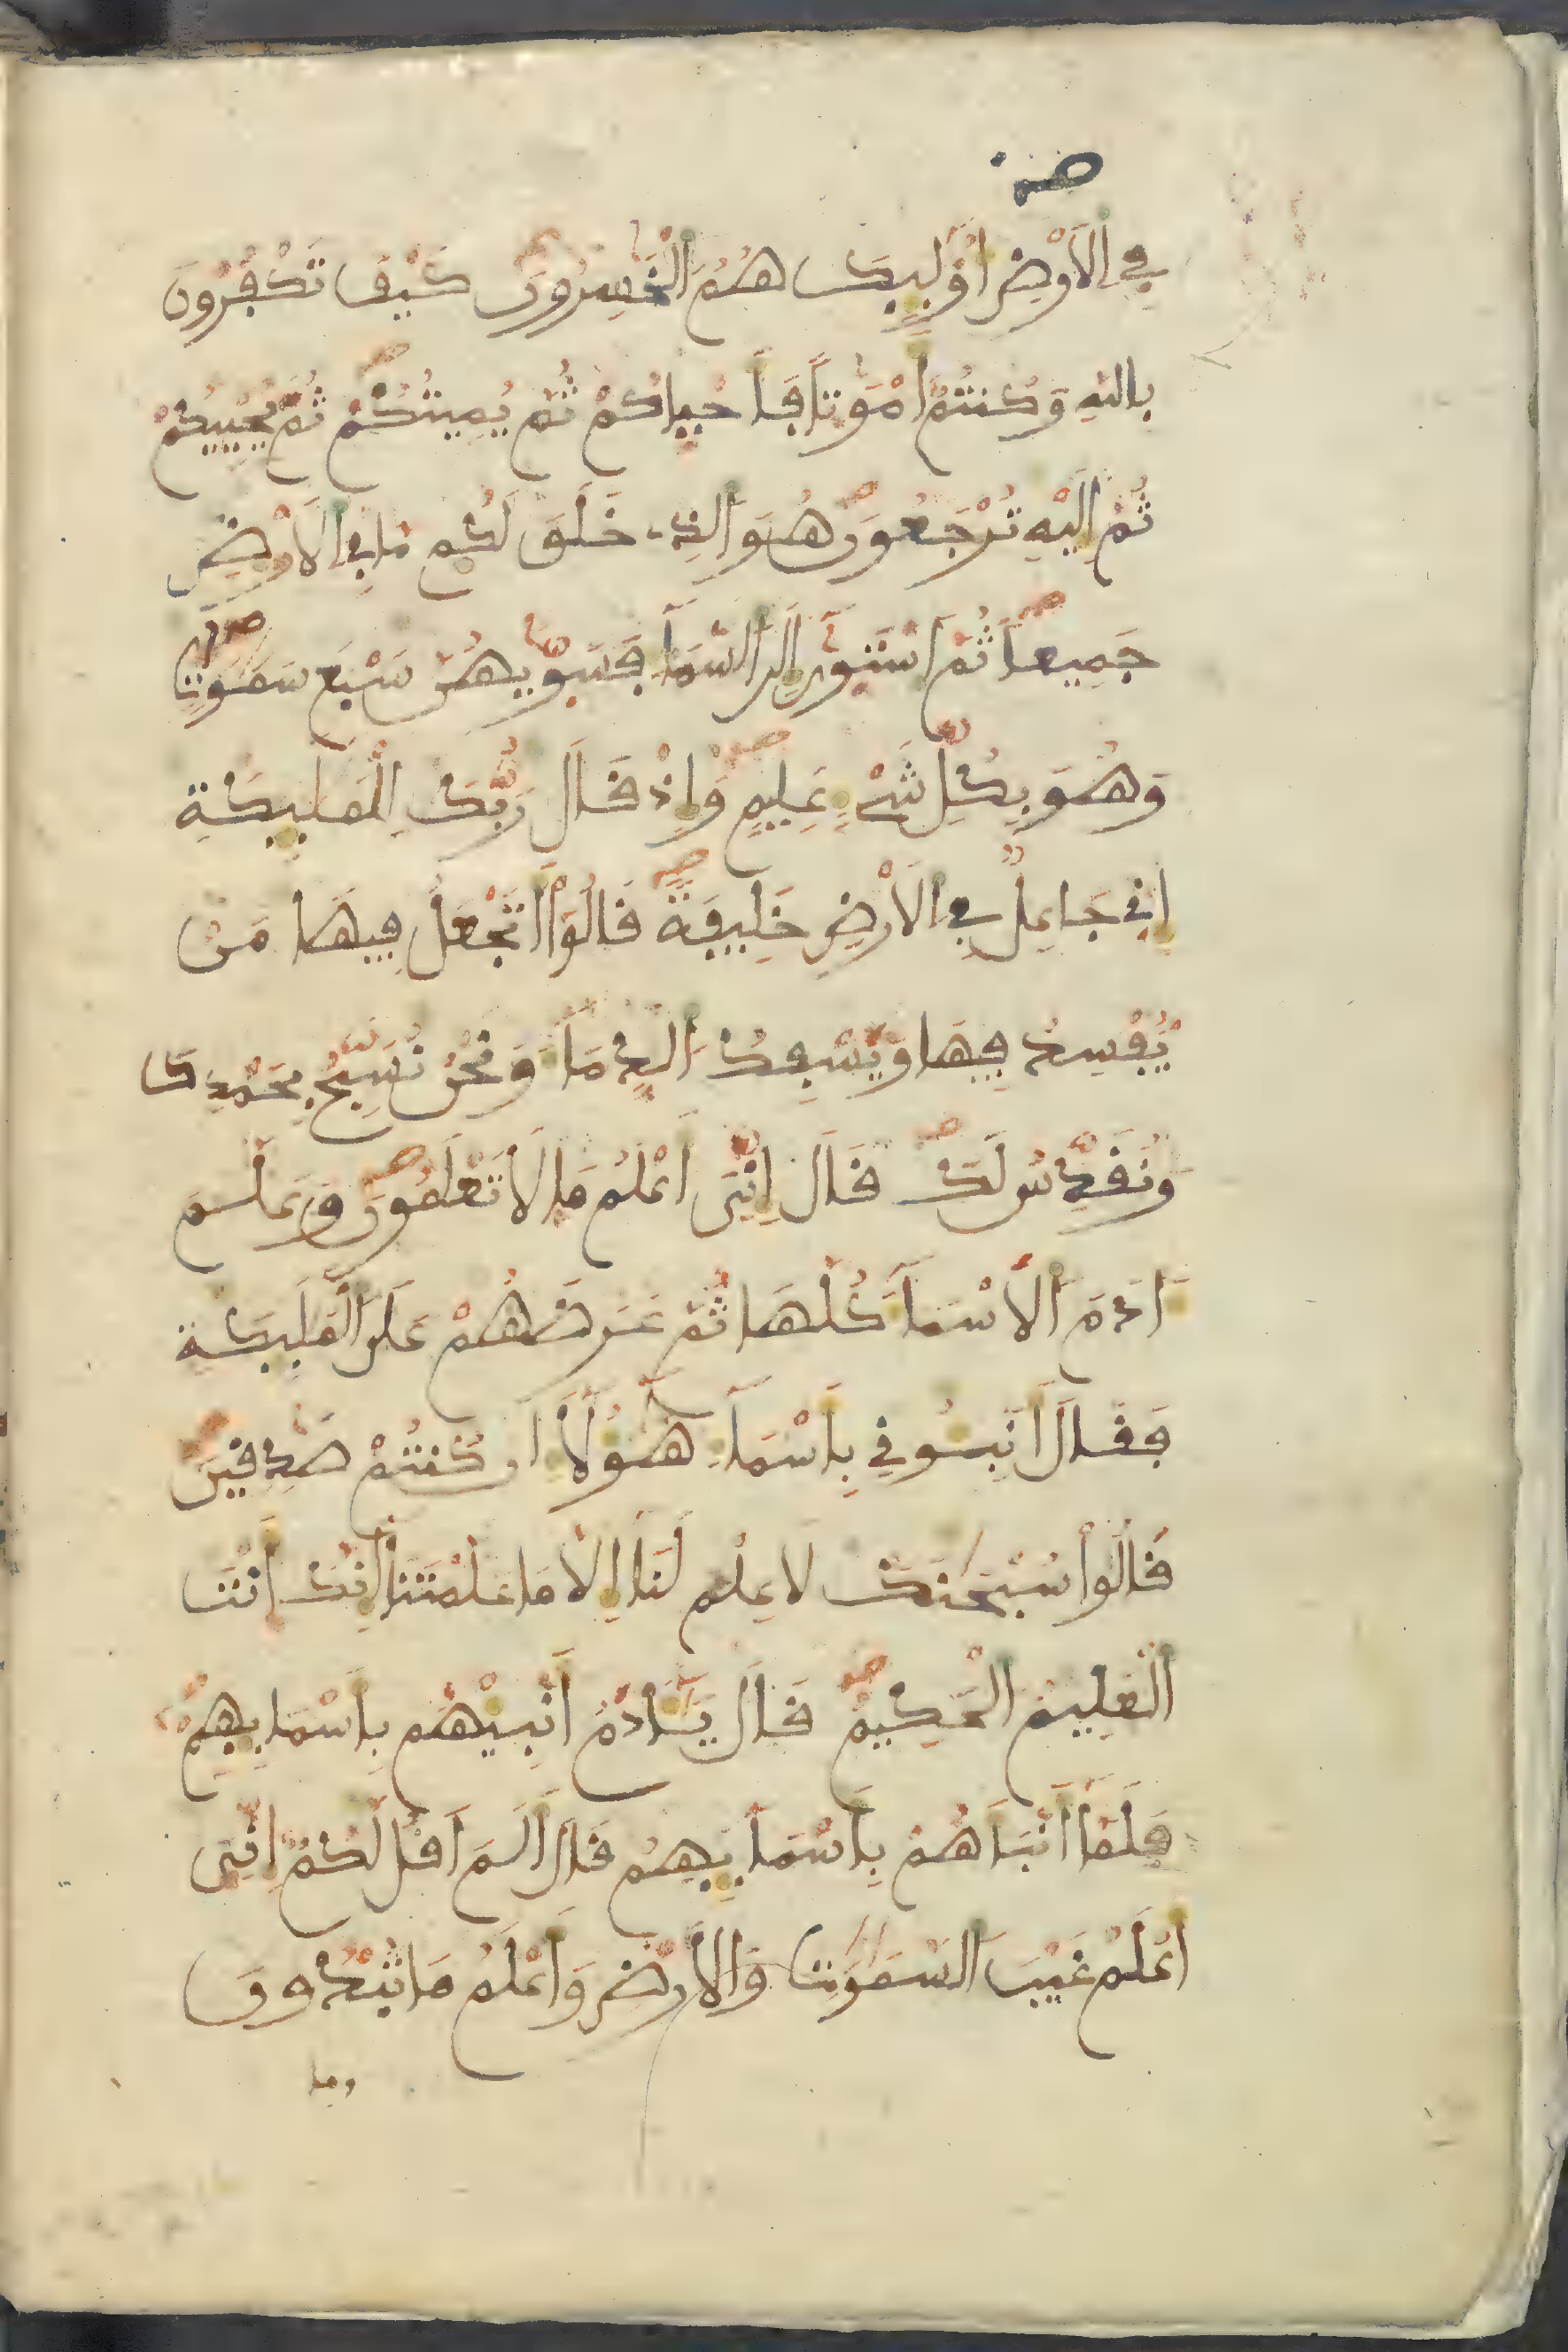 في الأرض أوليك هم الخسرون كيف تكفرون
بالله وكنتم أموتا فأحياكم ثم يميتكم ثم يحييكم
ثم إليه ترجعون هو الذي خلق لكم ما في الأرض
جميعا ثم استوى إلى السماء فسويهن سبع سموت
وهو بكل شيء عليم وإذ قال ربك للمليكة
إني جاعل في الأرض خليفة قالوا أتجعل فيها من
يفسد فيها ويسفك الدماء ونحن نسبح بحمدك
ونقدس لك قال إني أعلم ما لا تعلمون وعلم
ءادم الأسماء كلها ثم عرضهم على المليكة
فقال أنبئوني بأسماء هؤلاء ان كنتم صدقين
قالوا سبحنك لا علم لنا إلا ما علمتنا إنك أنت
العليم الحكيم قال يئادم أنبيهم بأسمايهم
فلما أنبأهم بأسمايهم قال ألم أقل لكم إني
أعلم غيب السموت والأرض وأعلم ما تبدون
وما